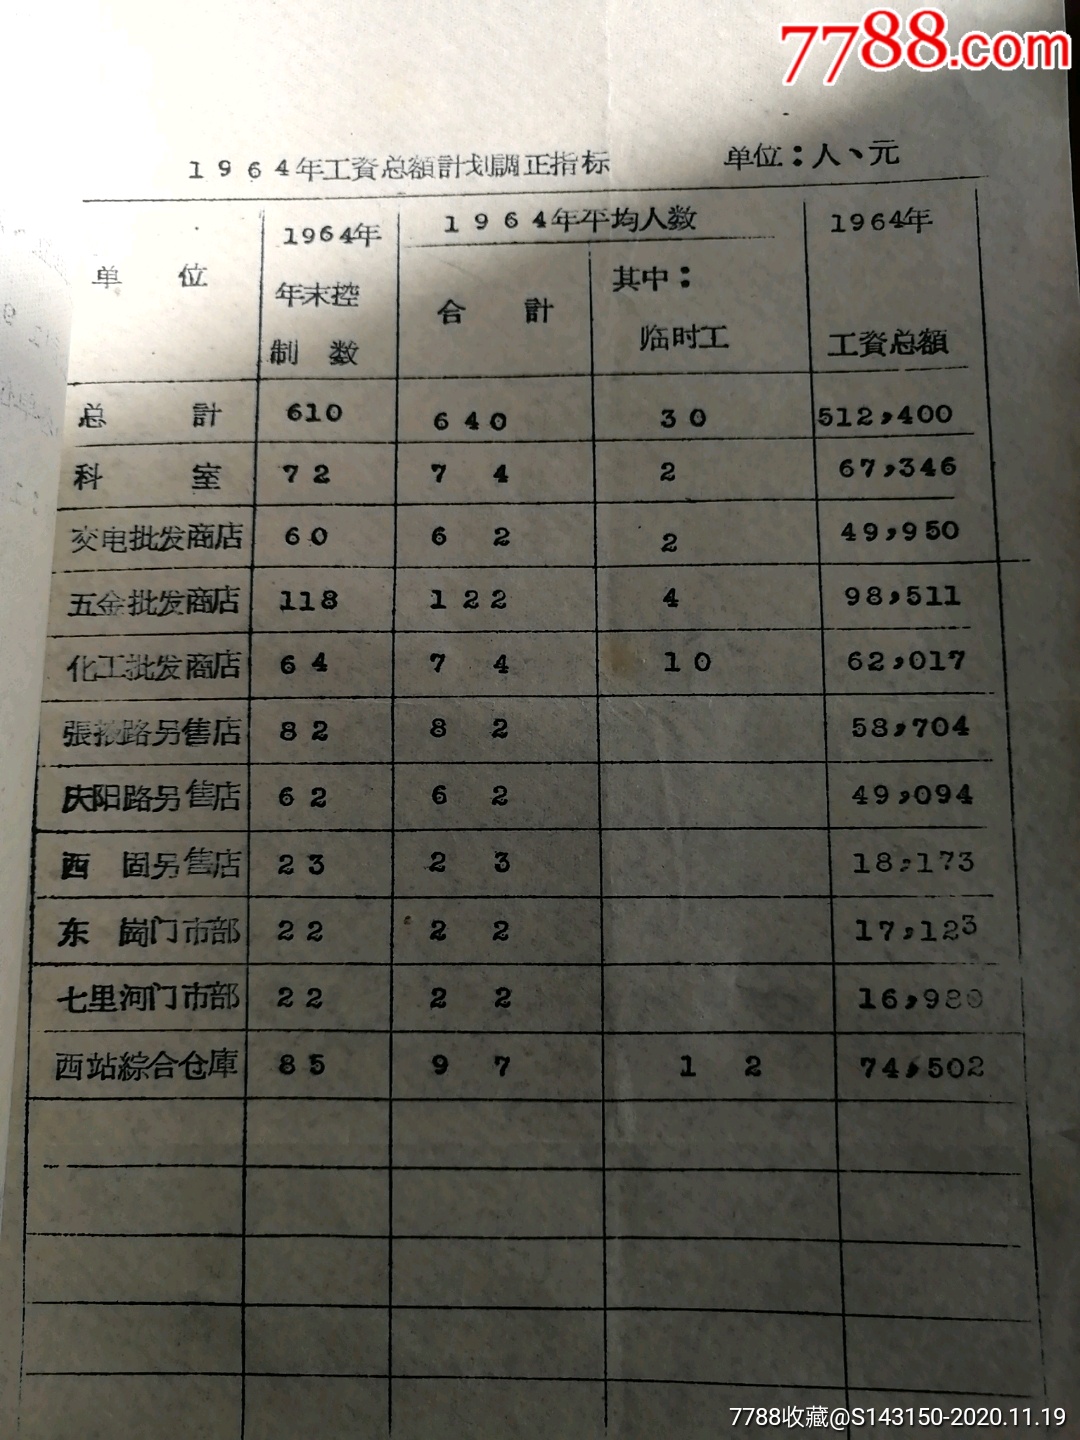 7788.com
1964年工資总額計划調正指标 单位：人、元
单 位 1964年年末控制数 1964年平均人数 1964年工資总額
合計 其中：临时工
总計 610 640 30 512,400
科室 72 74 2 67,346
交电批发商店 60 62 2 49,950
五金批发商店 118 122 4 98,511
化工批发商店 64 74 10 62,017
張掖路另售店 82 82 58,704
庆阳路另售店 62 62 49,094
西固另售店 23 23 18,173
东崗门市部 22 22 17,123
七里河门市部 22 22 16,980
西站綜合仓庫 85 97 12 74,502
7788收藏@S143150-2020.11.19